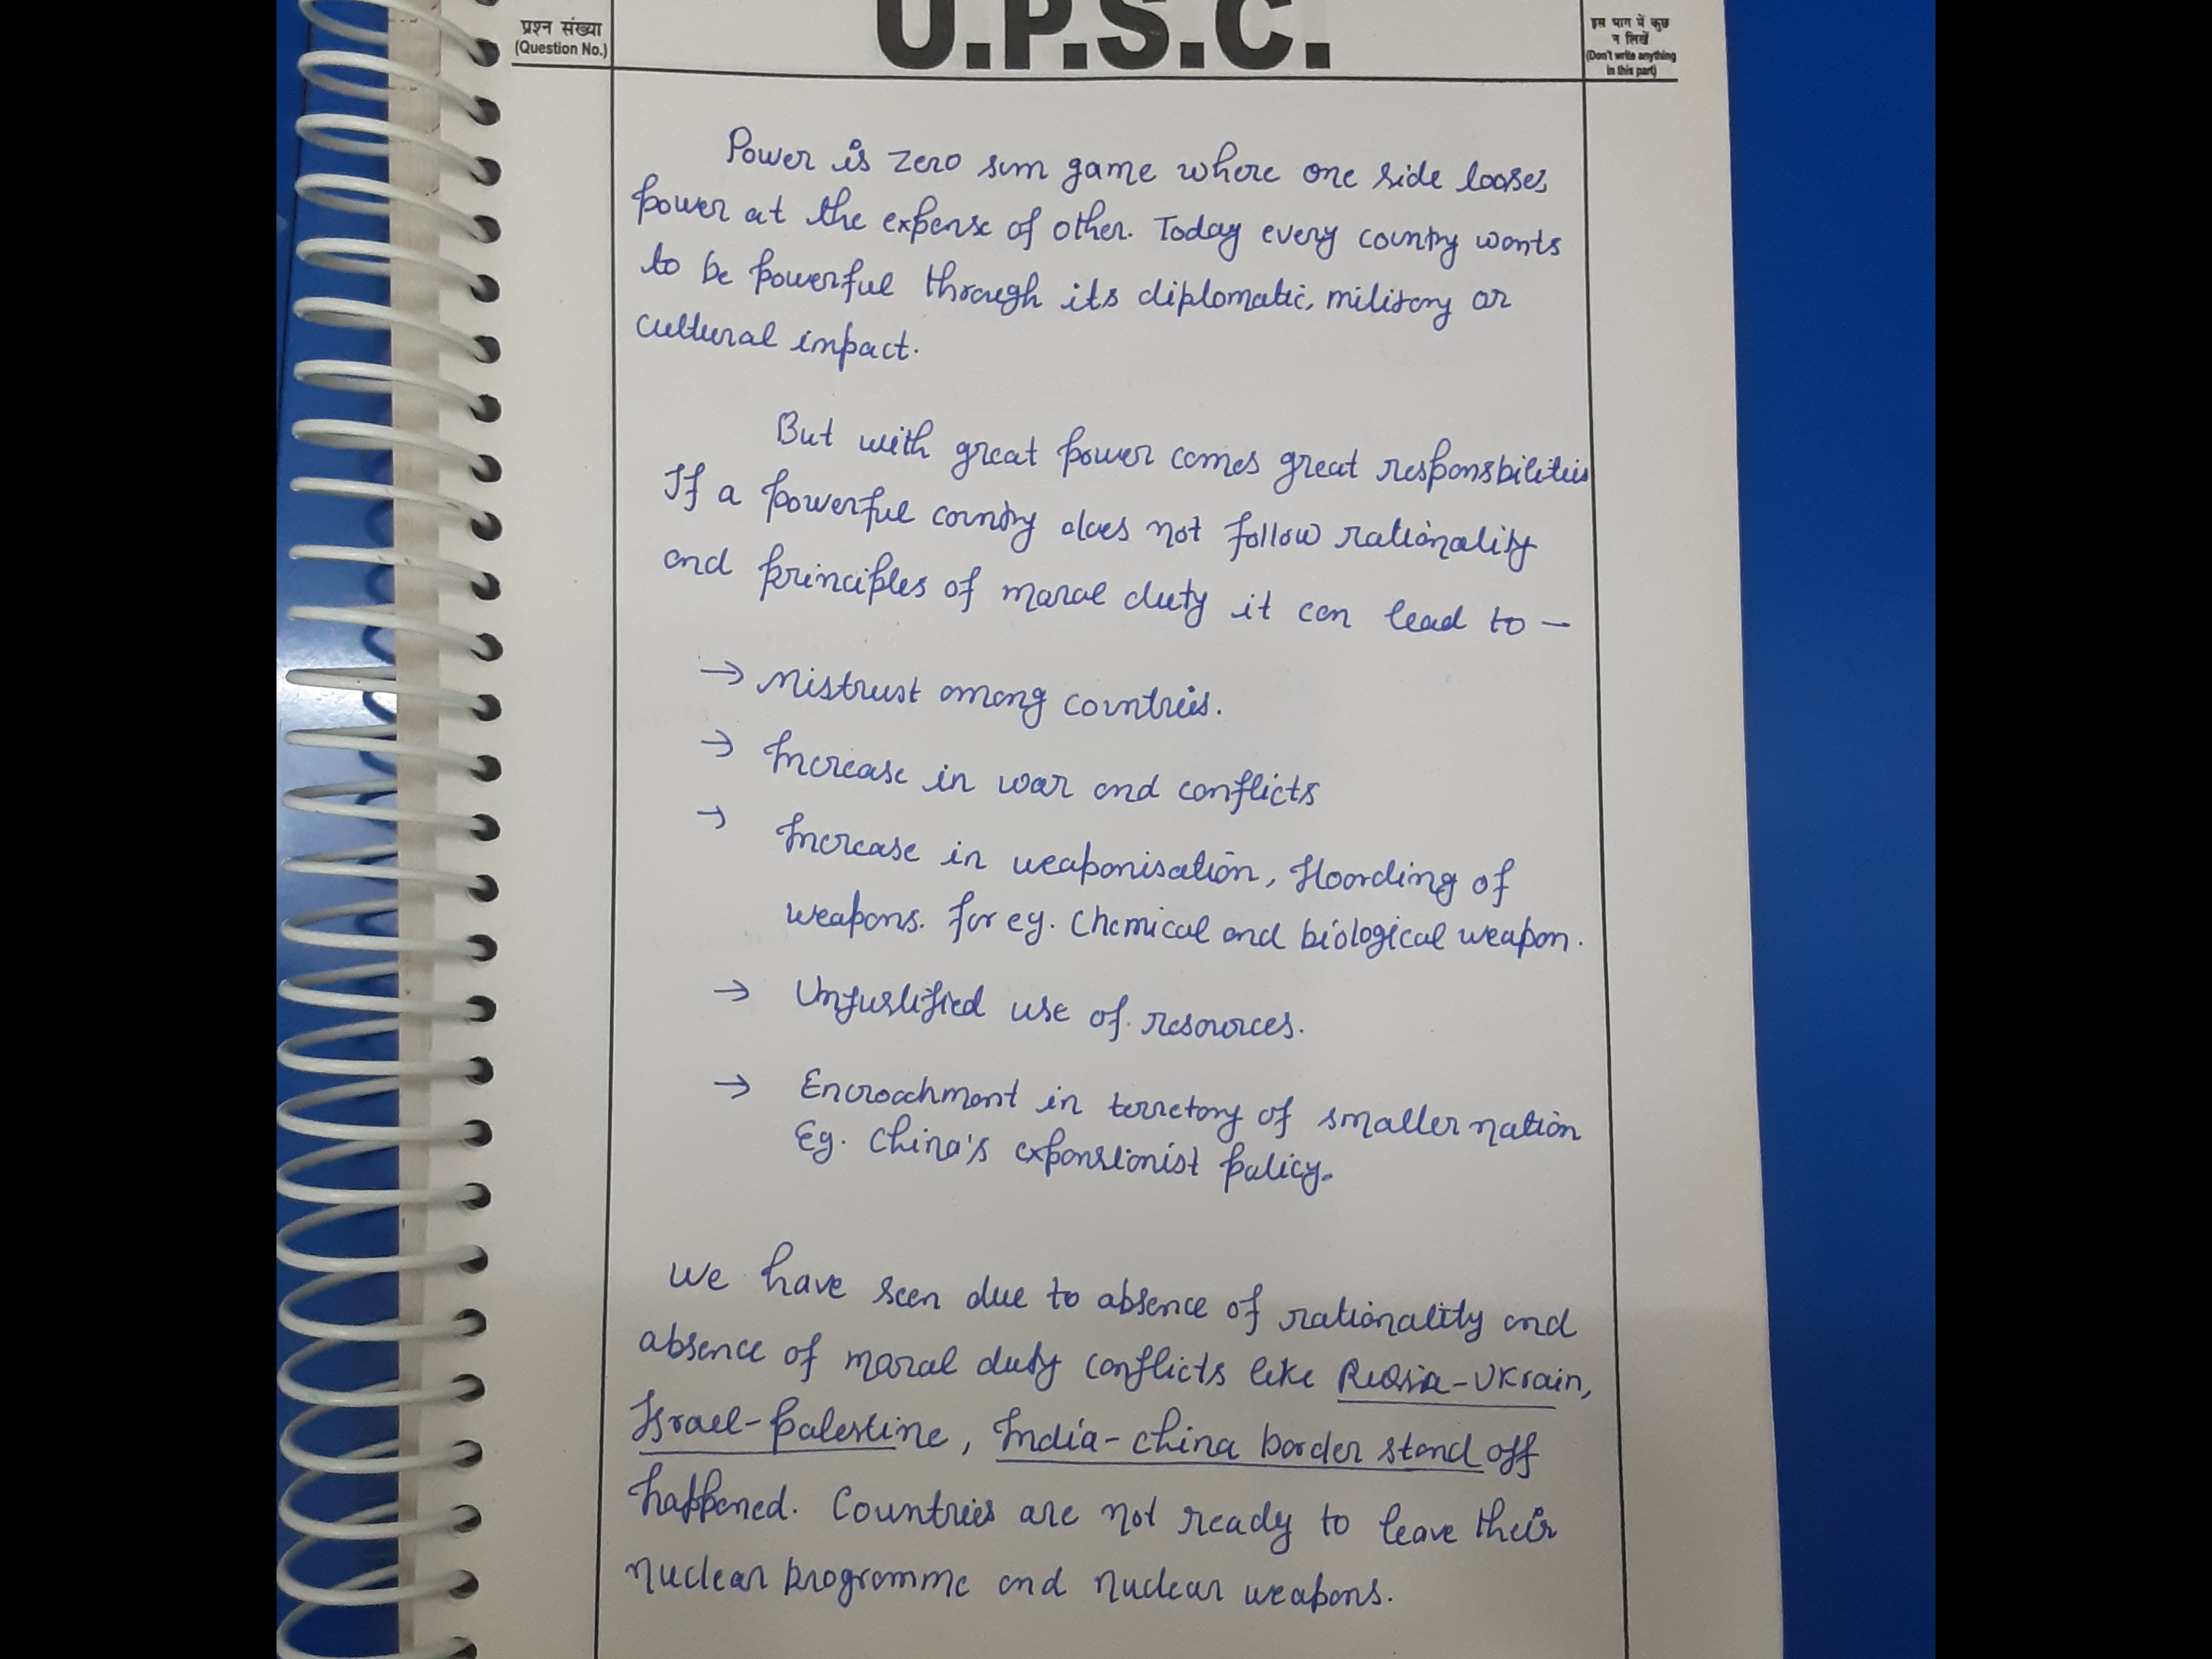 प्रश्न संख्या
(Question No.)
U.P.S.C.
इस भाग में कुछ
न लिखें
(Don't write anything
in this part)
Power is zero sum game where one side looses
power at the expense of other. Today every country wants
to be powerful through its diplomatic, military or
cultural impact.
But with great power comes great responsbilities
If a powerful country does not follow rationality
and principles of moral duty it can lead to —
→ Mistrust among countries.
→ Increase in war and conflicts
→ Increase in weaponisation, Hoording of
weapons. for eg. Chemical and biological weapon.
→ Unjustified use of resources.
→ Encroachment in terretory of smaller nation
Eg. China's expansionist policy.
We have seen due to absence of rationality and
absence of moral duty conflicts like Russia-Ukrain,
Israel-Palestine, India-China border stand off
happened. Countries are not ready to leave their
nuclear programme and nuclear weapons.